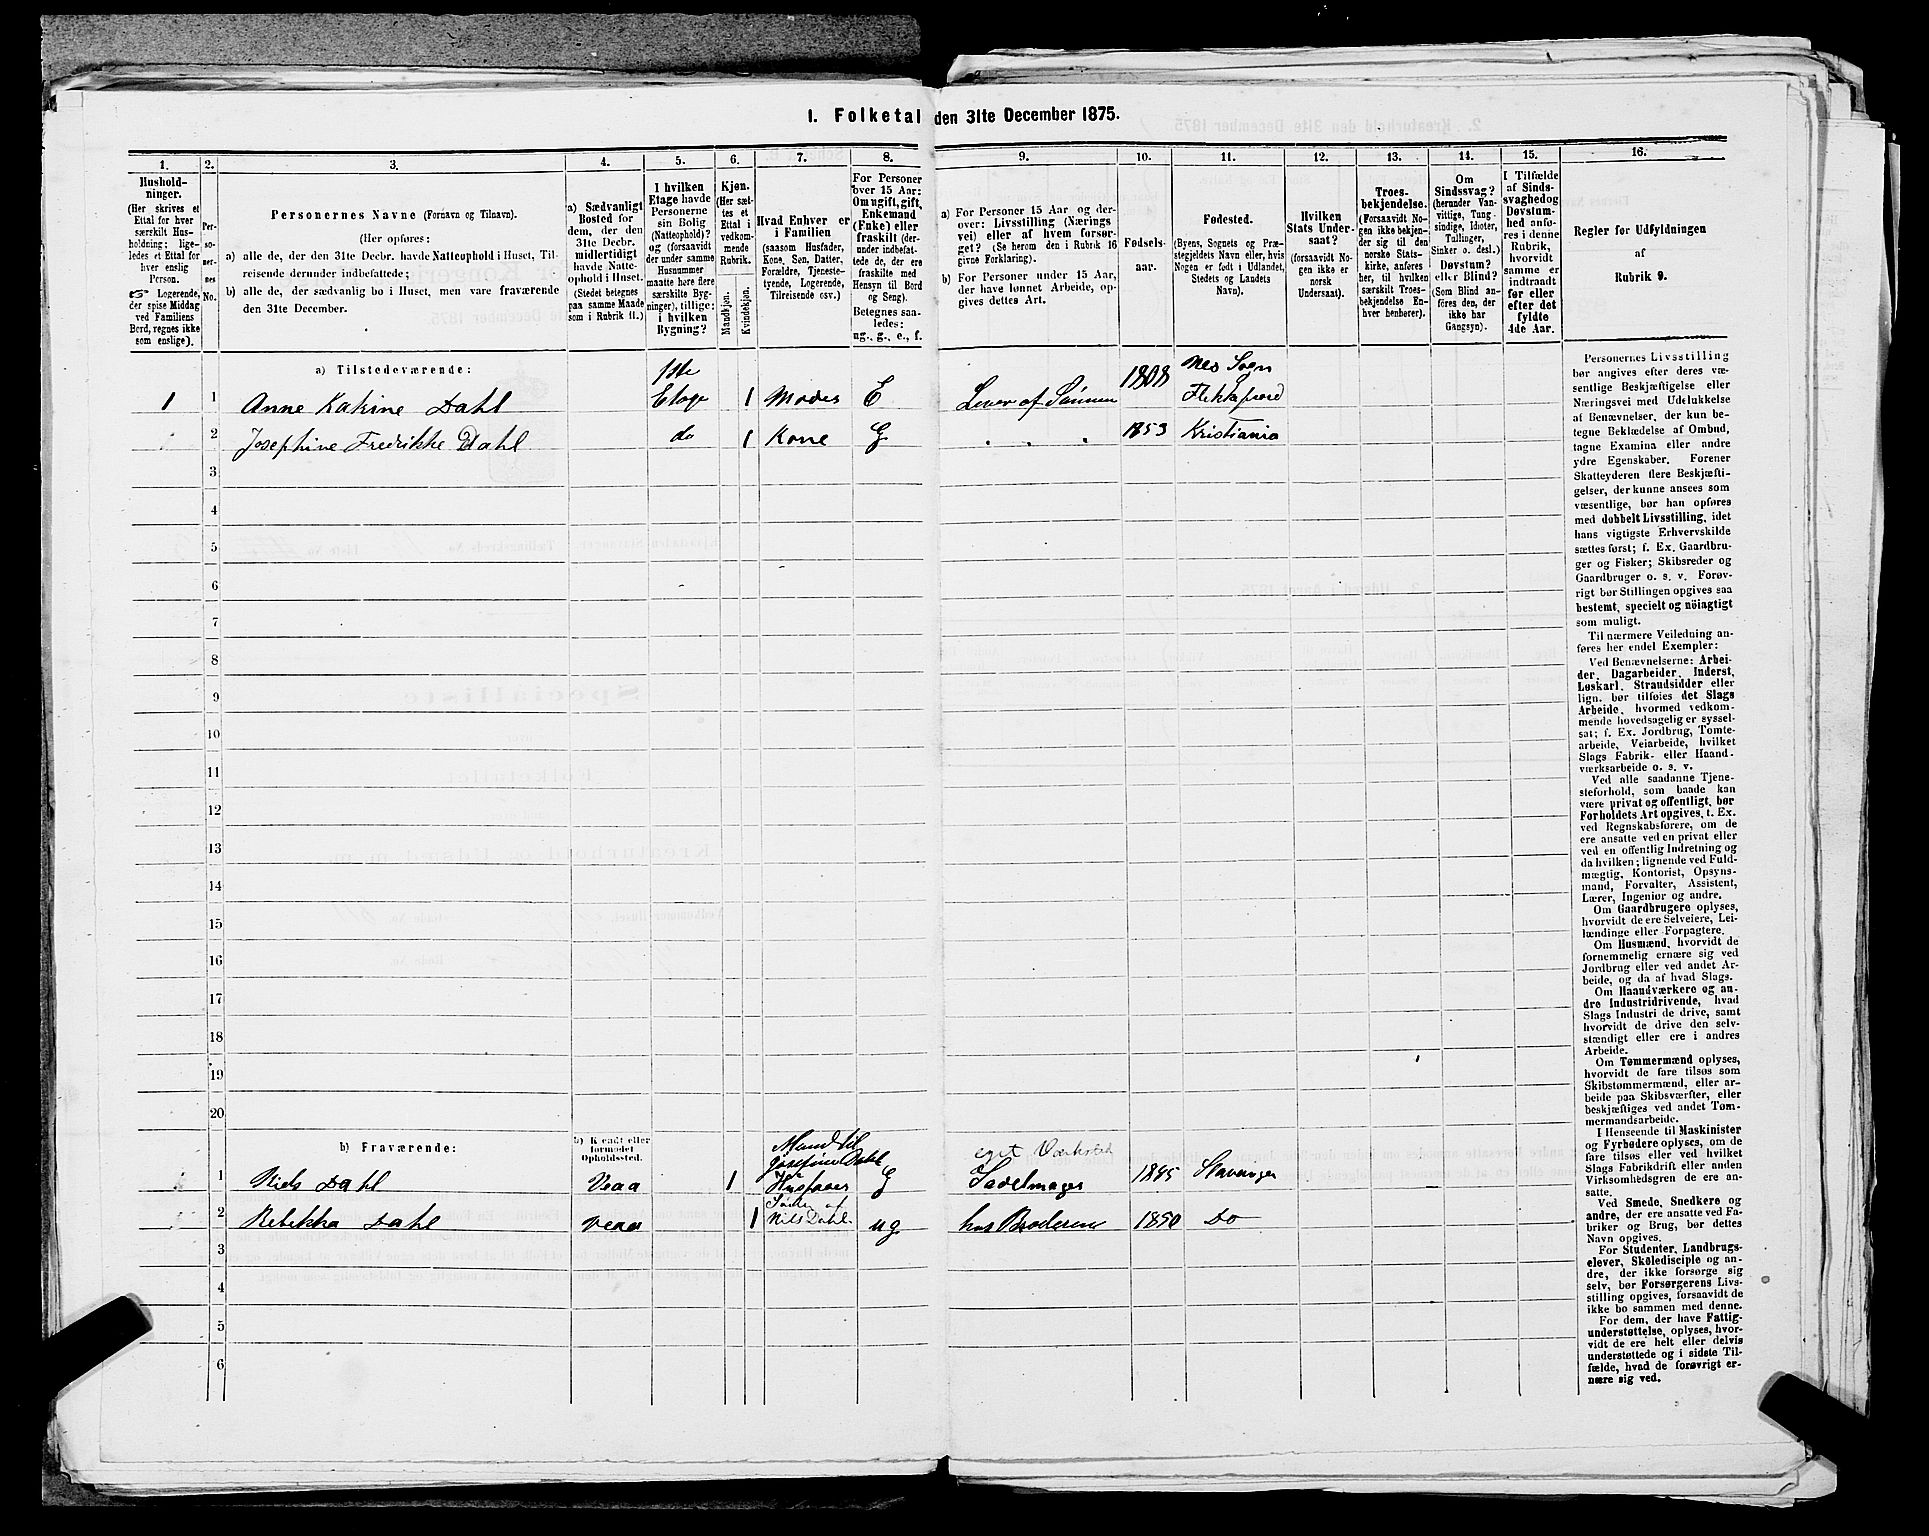 1. Folketal den 31te December 1875.
1. 2. 3. 4. 5. 6. 7. 8. 9. 10. 11. 12. 13. 14. 15. 16.
Hushold-
ninger.
(Her skrives et
Ettal for hver
særskilt Hus-
holdning; lige-
ledes et Ettal for
hver enslig
Person.
Logerende,
der spise Middag
ved Familiens
Bord, regnes ikke
som enslige).
Per-
so-
ner-
nes
No.
Personernes Navne (Fornavn og Tilnavn).
(Her opføres:
a) alle de, der den 31te Decbr. havde Natteophold i Huset, Til-
reisende derunder indbefattede;
b) alle de, der sædvanlig bo i Huset, men vare fraværende
den 31te December.
a) Sædvanligt
Bosted for
dem, der den
31te Decbr.
midlertidigt
havde Natte-
ophold i Huset.
(Stedet betegnes
paa samme Maade
som i Rubrik 11.)
I hvilken
Etage havde
Personerne
sin Bolig
(Natteophold)?
og (forsaavidt
der under samme
Husnummer
maatte høre flere
særskilte Byg-
ninger), tillige:
i hvilken
Bygning?
Kjøn.
(Her sæt-
tes et
Ettal i
vedkom-
mende
Rubrik.
Mandkjøn.
Kvindekjøn.
Hvad Enhver er
i Familien
(saasom Husfader,
Kone, Søn, Datter,
Forældre, Tjeneste-
tyende, Logerende,
Tilreisende osv.)
For Personer
over 15 Aar:
Om ugift, gift,
Enkemand
(Enke) eller
fraskilt (der-
under indbefat-
tede de, der ere
fraskilte med
Hensyn til Bord
og Seng).
Betegnes saa-
ledes:
ug., g., e., f.
a) For Personer 15 Aar og der-
over: Livsstilling (Nærings
vei) eller af hvem forsør-
get? (Se herom den i Rubrik 16
givne Forklaring).
b) For Personer under 15 Aar,
der have lønnet Arbeide, op-
gives dettes Art.
Fødsels-
aar.
Fødested.
(Byens, Sognets og Præ-
stegjeldets Navn eller, hvis
Nogen er født i Udlandet,
Stedets og Landets
Navn).
Hvilken
Stats Under-
saat?
(forsaavidt No-
gen ikke er
norsk
Undersaat).
Troes-
bekjendelse.
(Forsaavidt No-
gen ikke bekjen-
der sig til den
norske Stats-
kirke, anføres
her, til hvilken
særskilt Troes-
bekjendelse En-
hver henhører).
Om
Sindssvag?
(herunder Van-
vittige, Tung-
sindige, Idioter,
Tullinger,
Sinker o. desl.)
Døvstum?
eller Blind?
(Som Blind an-
føres den, der
ikke har
Gangsyn).
I Tilfælde
af Sinds-
svaghed og
Døvstum-
hed anfø-
res i denne
Rubrik,
hvorvidt
samme er
indtraadt
før eller
efter det
fyldte
4de Aar.
Regler før Udfyldningen
af
Rubrik 9.
a) Tilstedeværende:
1 1 Anne Katrine Dahl 1ste Etage 1 Moder E Lever af Sønnen 1808 Nes Sogn Flekkefjord
2 Josephine Fredrikke Dahl do 1 Kone G 1853 Kristiania
3
4
5
6
7
8
9
10
11
12
13
14
15
16
17
18
19
20
b) Fraværende:
b) Kjendt eller
formodet
Opholdssted.
1 Niels Dahl Veaa 1 Mand til Josefine Dahl Husfader G eget Værksted Sadelmager 1845 Stavanger
2 Rebekka Dahl Veaa 1 Søster af Nils Dahl ug hos Broderen 1850 Do
3
4
5
6
Personernes Livsstilling
bør angives efter deres væ-
sentlige Beskjæftigelse eller
Næringsvei med Udelukkelse
af Benævnelser, der kun be-
tegne Beklædelse af Ombud,
tagne Examina eller andre
ydre Egenskaber. Forener
Skatteyderen flere Beskjæfti-
gelser, der kunne ansees som
væsentlige, bør han opføres
med dobbelt Livsstilling, idet
hans vigtigste Erhvervskilde
sættes først; f. Ex. Gaardbru-
ger og Fisker; Skibsreder og
Gaardbruger o. s. v. Forøv-
rigt bør Stillingen opgives saa
bestemt, specielt og nöiagtigt
som muligt.
Til nærmere Veiledning an-
føres her endel Exempler:
Ved Benævnelserne: Arbei-
der, Dagarbeider, Inderst,
Løskarl, Strandsidder eller
lign. bør tilføies det Slags
Arbeide, hvormed vedkom-
mende hovedsagelig er syssel-
sat; f. Ex. Jordbrug, Tomte-
arbeide, Veiarbeide, hvilket
Slags Fabrik- eller Haand-
værksarbeide o. s. v.
Ved alle saadanne Tjene-
steforhold, som baade kan
være privat og offentligt, bør
Forholdets Art opgives, t. Ex.
ved Regnskabsførere, om de
ere ansatte ved en privat eller
ved en offentlig Indretning og
da hvilken; lignende ved Fuld-
mægtig, Kontorist, Opsyns-
mand, Forvalter, Assistent,
Lærer, Ingeniør og andre.
Om Gaardbrugere oplyses,
hvorvidt de ere Selveiere, Lei-
lændinge eller Forpagtere.
Om Husmænd, hvorvidt de
fornemmelig ernære sig ved
Jordbrug eller ved andet Ar-
beide, og da af hvad Slags.
Om Haandværkere og an-
dre Industridrivende, hvad
Slags Industri de drive, samt
hvorvidt de drive den selv-
stændigt eller ere i andres
Arbeide.
Om Tømmermænd oplyses,
hvorvidt de fare tilsøs som
Skibstømmermænd, eller ar-
beide paa Skibsværfter, eller
beskjæftiges ved andet Tøm-
mermandsarbeide.
I Henseende til Maskinister
og Fyrbødere oplyses, om de
fare tilsøs eller ved hvilket
Slags Fabrikdrift eller anden
Virksomhedsgren de ere an-
satte.
Ved Smede, Snedkere og
andre, der ere ansatte ved Fa-
briker og Brug, bør dettes
Navn opgives.
For Studenter, Landbrugs-
elever, Skoledisciple og an-
dre, der ikke forsørge sig
selv, bør Forsørgerens Livs-
stilling opgives, forsaavidt de
ikke bo sammen med denne.
For dem, der have Fattig-
understøttelse, oplyses, hvor-
vidt de ere helt eller delvis
understøttede og i sidste Til-
fælde, hvad de forøvrigt er-
nære sig ved.